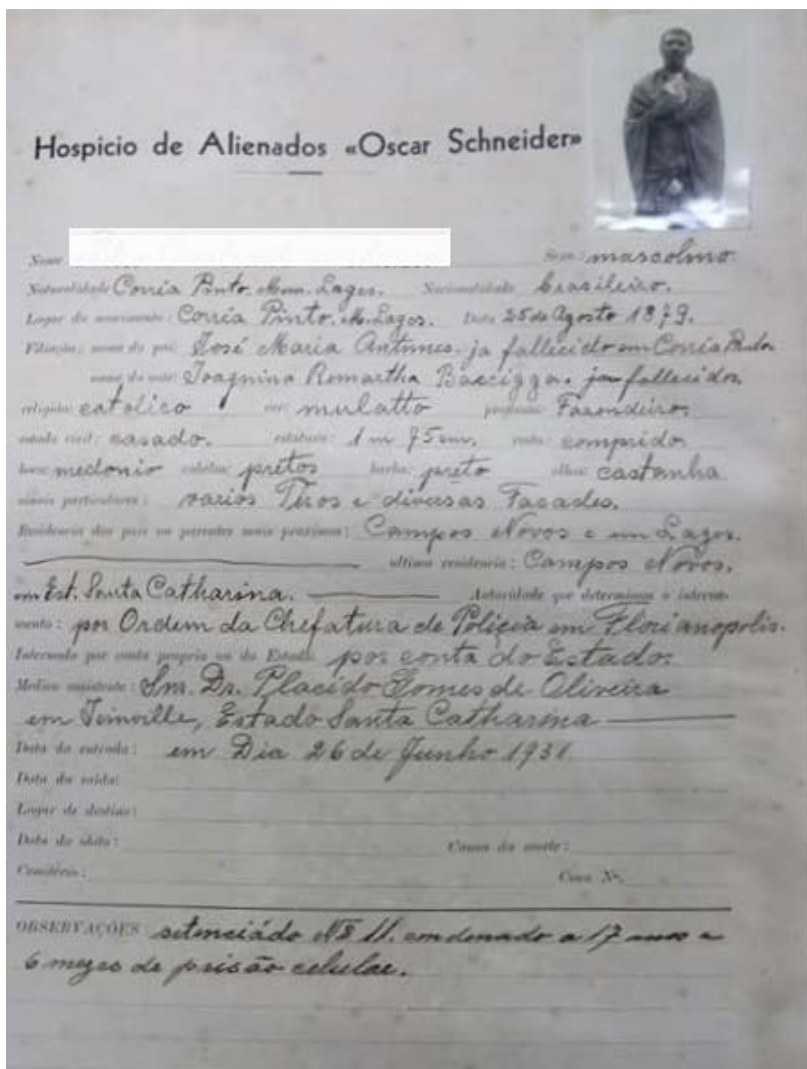 Hospicio de Alienados «Oscar Schneider»
Nome Sexo: mascolino
Naturalidade Corria Pinto. Mun. Lages. Nacionalidade brasileiro.
Logar do nascimento: Corria Pinto. M. Lages. Data 25 de Agosto 1879.
Filiação: nome do pai: José Maria Antunes. ja fallecido em Corria Pinto
nome da mãe: Joaquina Remartha ja fallecido,
religião: catolico cor: mulatto profissão: Fazendeiro,
estado civil: casado. estatura: 1 m 75 cm, rosto: comprido
boca: medonio cabelos: pretos barba: preto olhos: castanha
sinais particulares: varios Tiros e diversas Facades.
Residencia dos pais ou parentes mais proximos: Campos Novos e em Lages.
ultima residencia: Campos Novos.
em Est. Santa Catharina. Autoridade que determinou o interna-
mento: por Ordem da Chefatura de Policia em Florianopolis.
Internado por conta propria ou do Estado: por conta do Estado.
Medico assistente: Snr. Dr. Placido Gomes de Oliveira
em Joinville, Estado Santa Catharina
Data da entrada: em Dia 26 de Junho 1931
Data da saida:
Logar de destino:
Data do obito: Causa da morte:
Cemitério: Cova Nº.
OBSERVAÇÕES setenciádo Nº 11. condenado a 17 anos e
6 mezes de prisão celular.